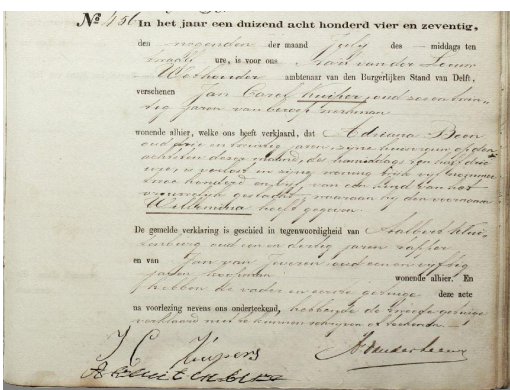 Nº 456 In het jaar een duizend acht honderd vier en zeventig,
den negenden der maand July des — middags ten
twaalf ure, is voor ons van der Leeuw
Wethouder ambtenaar van den Burgerlijken Stand van Delft,
verschenen Jan Carel Kuiper, oud zeven twin-
tig jaren van beroep werkman
wonende alhier, welke ons heeft verklaard, dat Adriana Boon
oud drie en twintig jaren, zijne huisvrouw, op den
achtsten dezer maand, des namiddags ten half drie
ure, is verlost in zijne woning wijk vijf nummer
twee honderd van een kind van het
vrouwelijk geslacht, waaraan hij den voornaam
Willemina heeft gegeven
De gemelde verklaring is geschied in tegenwoordigheid van
oud een en dertig jaren
en van Jan van oud een en vijftig
jaren, wonende alhier. En
hebben de vader en eerste getuige deze acte
na voorlezing nevens ons onderteekend, hebbende de tweede getuige
verklaard niet te kunnen schrijven of teekenen
J C Kuipers
A vanderLeeuw